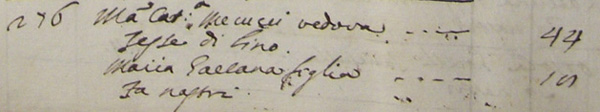 276 Ma Cat:a Menucci vedova ---- 44
Tesse di lino.
Maria Gaetana figlia ----
Fa nastri